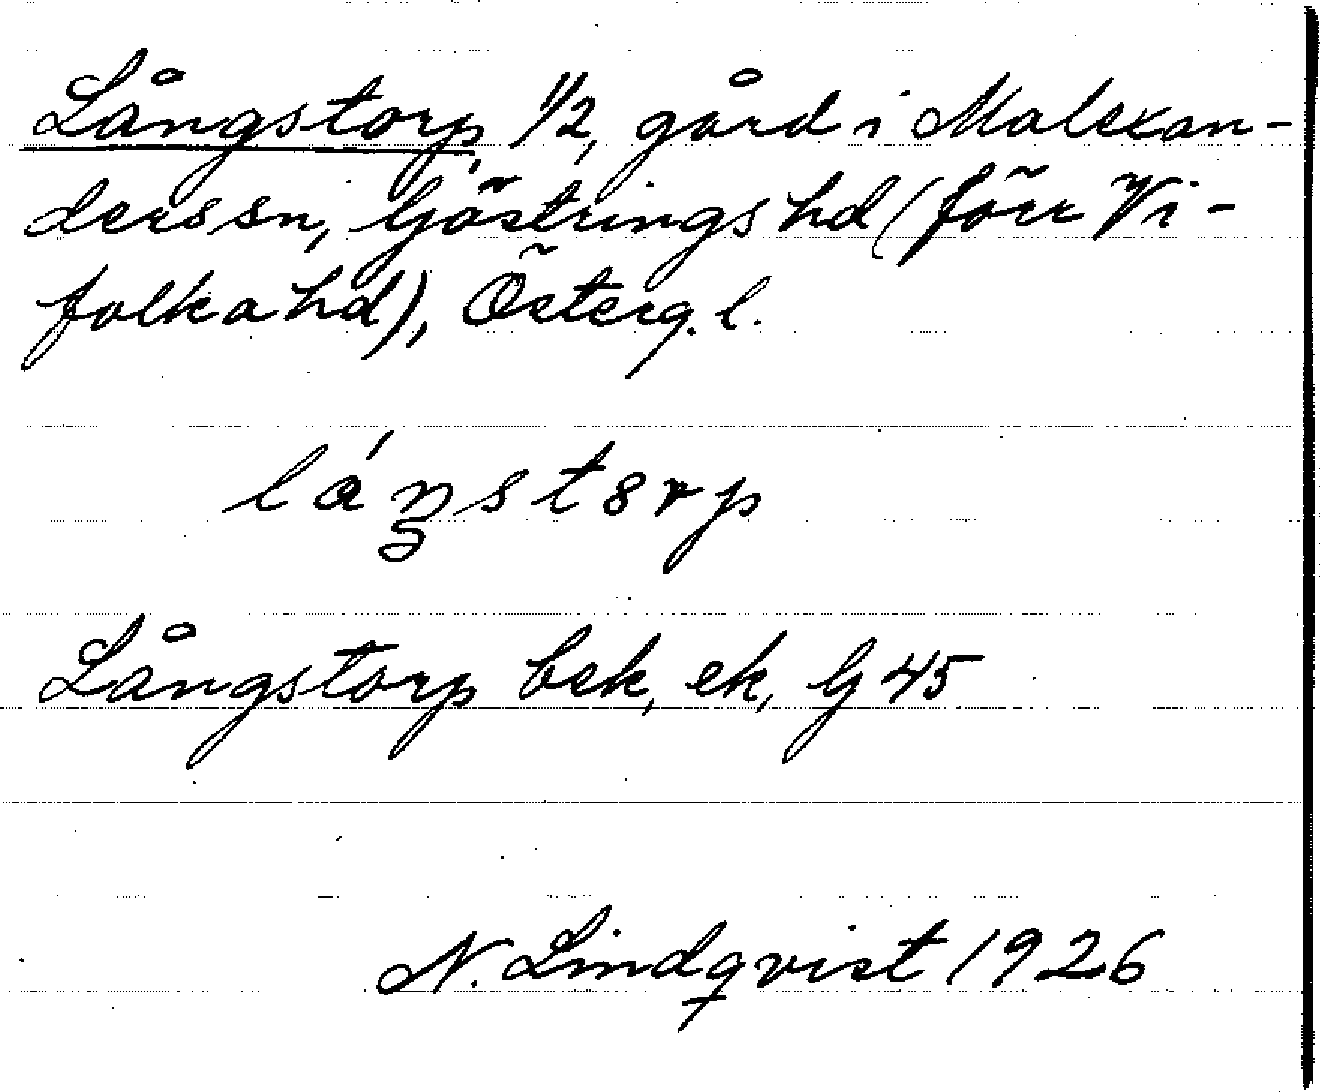 Långstorp, 1/2, gård i Malexan-
ders sn, Göstrings hd (förr Vi-
folka hd), Österg. l.
láŋstɔrp
Långstorp bek, ek, G 45
N. Lindqvist 1926